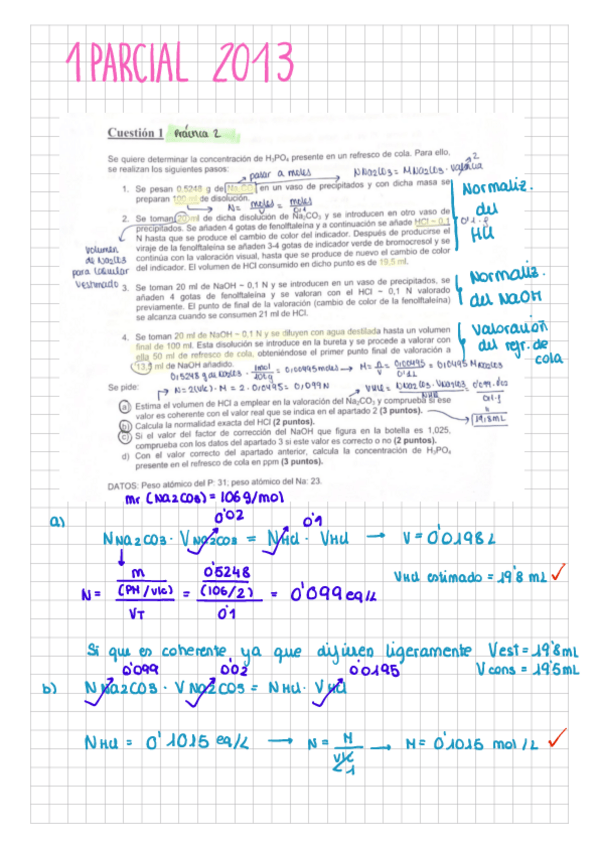 1 PARCIAL 2013
Cuestión 1 Práctica 2
Se quiere determinar la concentración de H₃PO₄ presente en un refresco de cola. Para ello,
se realizan los siguientes pasos:
pasar a moles
N Na2CO3 = M Na2CO3 · valencia 2
1. Se pesan 0,5248 g de Na₂CO₃ en un vaso de precipitados y con dicha masa se
preparan 100 ml de disolución.
N = meq/es = moles/0'1
2. Se toman 20 ml de dicha disolución de Na₂CO₃ y se introducen en otro vaso de
precipitados. Se añaden 4 gotas de fenolftaleína y a continuación se añade HCl ~ 0,1
N hasta que se produce el cambio de color del indicador. Después de producirse el
viraje de la fenolftaleína se añaden 3-4 gotas de indicador verde de bromocresol y se
continúa con la valoración visual, hasta que se produce de nuevo el cambio de color
del indicador. El volumen de HCl consumido en dicho punto es de 19,5 ml.
Normaliz.
del
HCl
volumen
de Na2CO3
para calcular
3. Se toman 20 ml de NaOH ~ 0,1 N y se introducen en un vaso de precipitados, se
añaden 4 gotas de fenolftaleína y se valoran con el HCl ~ 0,1 N valorado
previamente. El punto de final de la valoración (cambio de color de la fenolftaleína)
se alcanza cuando se consumen 21 ml de HCl.
Normaliz.
del NaOH
4. Se toman 20 ml de NaOH ~ 0,1 N y se diluyen con agua destilada hasta un volumen
final de 100 ml. Esta disolución se introduce en la bureta y se procede a valorar con
ella 50 ml de refresco de cola, obteniéndose el primer punto final de valoración a
13,5 ml de NaOH añadido.
Valoración
del refr. de
cola
0'5248 g de Na2CO3 · 1mol/106g = 0'00495 moles → M = n/V = 0'00495/0'1L = 0'0495 M Na2CO3
Se pide:
N = 2(vlc) · M = 2 · 0'0495 = 0'099 N
VHCl = N Na2CO3 · V Na2CO3/NHCl
19'8mL
a) Estima el volumen de HCl a emplear en la valoración del Na₂CO₃ y comprueba si ese
valor es coherente con el valor real que se indica en el apartado 2 (3 puntos).
b) Calcula la normalidad exacta del HCl (2 puntos).
c) Si el valor del factor de corrección del NaOH que figura en la botella es 1,025,
comprueba con los datos del apartado 3 si este valor es correcto o no (2 puntos).
d) Con el valor correcto del apartado anterior, calcula la concentración de H₃PO₄
presente en el refresco de cola en ppm (3 puntos).
DATOS: Peso atómico del P: 31; peso atómico del Na: 23.
mr (Na2CO3) = 106 g/mol
a)
0'02 0'1
N Na2CO3 · V Na2CO3 = NHCl · VHCl → V = 0'0198 L
N = m/(PM/vlc)/VT = 0'5248/(106/2)/0'1 = 0'099 eq/L
VHCl estimado = 19'8 mL ✓
Si que es coherente ya que difieren ligeramente Vest = 19'8 mL
V cons = 19'5 mL
0'099 0'02 0'0195
b) N Na2CO3 · V Na2CO3 = NHCl · VHCl
NHCl = 0'1015 eq/L → N = M/vlc → M = 0'1015 mol/L ✓
1